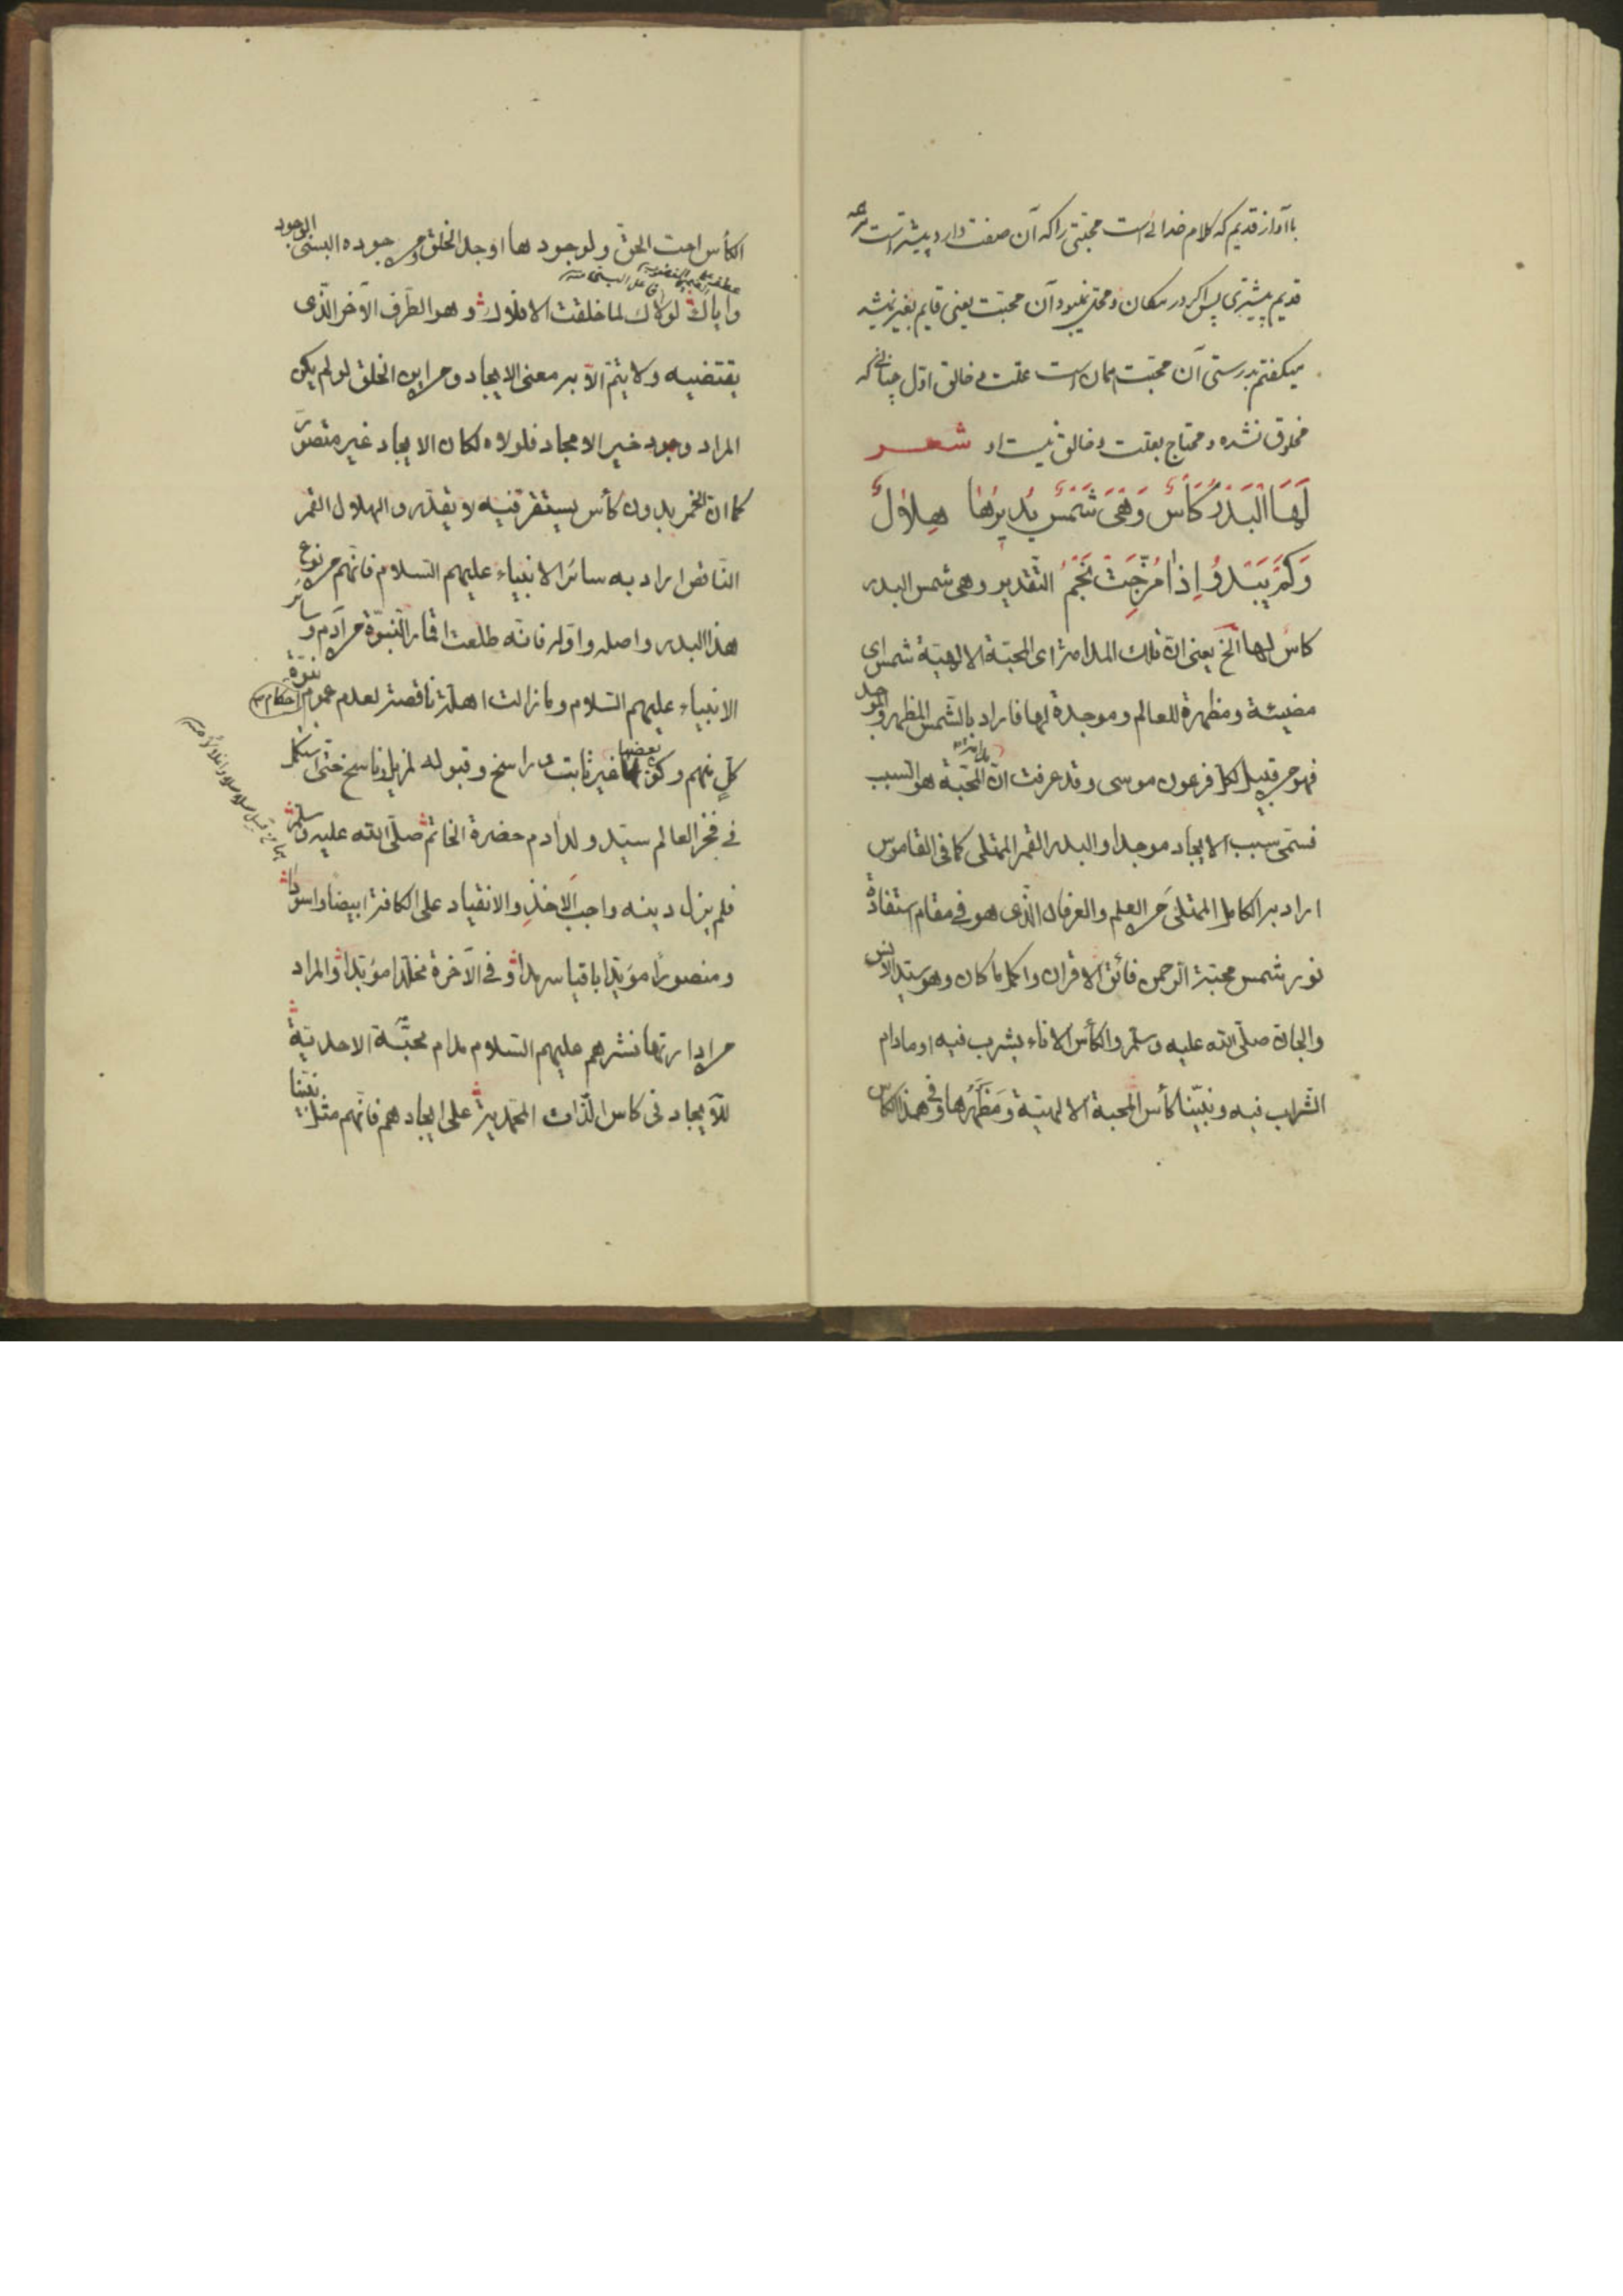 با آواز قدیم که کلام خدائی است محبتی را که آن صفت دارد پیشتر است
قدیم پیشتری پس اگر در مکان و محل نبود آن محبت یعنی قایم بغیر نمیشد
میگفتم بدرستی آن محبت همان است علت بی خالق اول چنانی که
مخلوق نشده و محتاج بعلت و خالق نیست او شعر
لَهَا الْبَدْرُ كَأْسٌ وَهْيَ شَمْسٌ يُدِيرُهَا هِلَالٌ
وَكَمْ يَبْدُو إِذَا مُزِجَتْ نَجْمُ التقدير وهى شمس البدر
كاس لها الخ يعنى ان تلك المدامة اى المحبة الالهية شمس اى
مضيئة ومظهرة للعالم وموجدة لها فاراد بالشمس المظهر والموجد
فهو من قبيل لكل فرعون موسى وقد عرفت ان المحبة هو السبب
فسمى سبب الايجاد موجدا والبدر القمر الممتلى كما فى القاموس
اراد به الكامل الممتلى من العلم والعرفان الذى هو فى مقام استفادة
نور شمس محبة الرحمن فائق الاقران واكمل ما كان وهو سيد الانس
والجان صلى الله عليه وسلم والكأس الاناء يشرب فيه او مادام
الشراب فيه ونبينا كأس المحبة الالهية ومَظْهَرُها وفى هذا الكاس
الكأس احب الحق ولوجودها اوجد الخلق ومن جوده البسنى الوجود
واياك لولاك لما خلقت الافلاك وهو الطرف الآخر الذى
يقتضيه ولا يتم الا به معنى الايجاد ومن اين الخلق لو لم يكن
المراد وجود خير الامجاد فلولاه لكان الايجاد غير متصور
كما ان الخمر بدون كأس يستقر فيه لا يقدر والهلال القمر
الناقص اراد به سائر الانبياء عليهم السلام فانهم من نوع
هذا البدر واصله واوله فانه طلعت اقمار النبوة من آدم وسائر
الانبياء عليهم السلام وما زالت اهلة ناقصة لعدم عموم نبوة
احكام
كل منهم وكون بعضها غير ثابت وراسخ وقبوله لمزيل وناسخ حتى استكمل
فى فخر العالم سيد ولد آدم حضرة الخاتم صلى الله عليه وسلم
فلم يزل دينه واجب الاخذ والانقياد على الكافة ابيضا واسودا
ومنصورا مؤبدا باقيا سرمدا وفى الآخرة مخلدا مؤبدا والمراد
من ادارتها نشرهم عليهم السلام مدام محبة الاحدية
للايجاد فى كاس الذات المحمدية على ايجادهم فانهم مثل نبينا